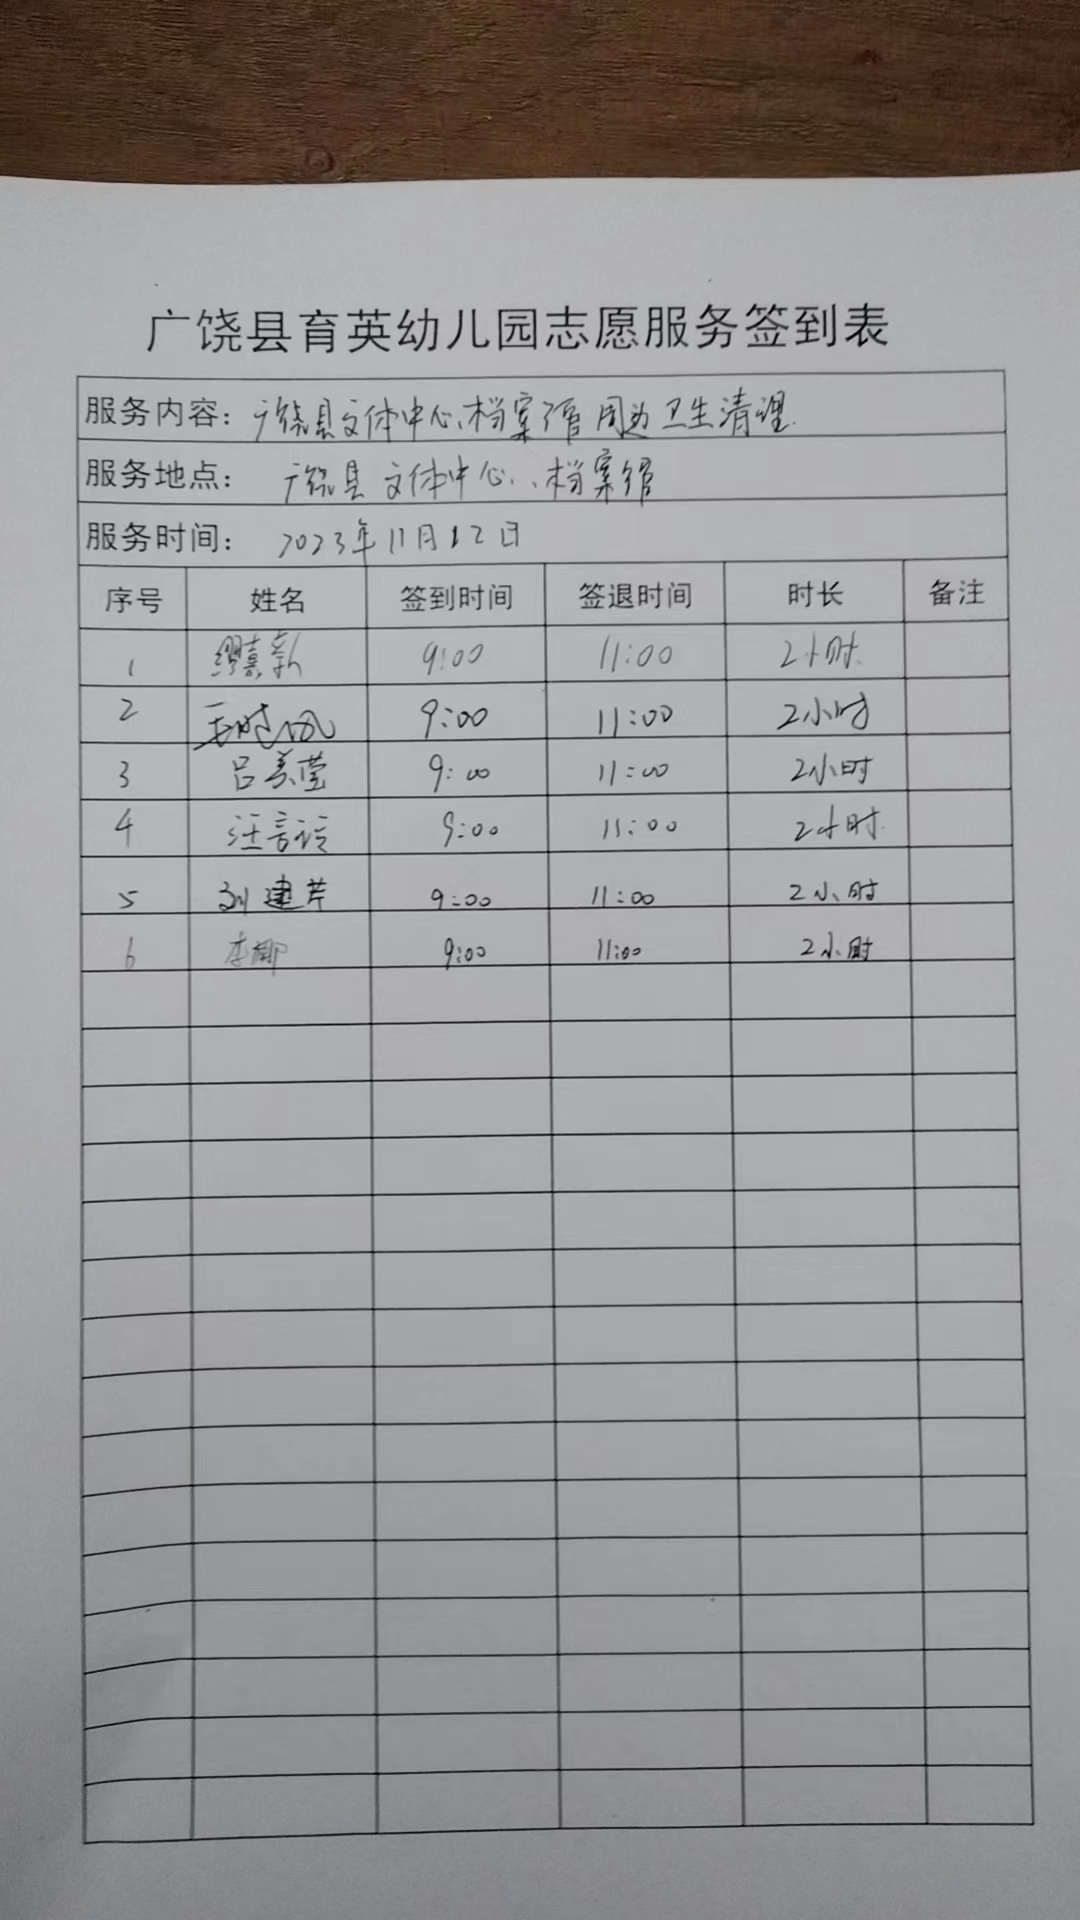 广饶县育英幼儿园志愿服务签到表
服务内容：广饶县文体中心、档案馆周边卫生清理.
服务地点：广饶县文体中心、、档案馆
服务时间：2023年11月12日
序号 姓名 签到时间 签退时间 时长 备注
1 9:00 11:00 2小时.
2 9:00 11:00 2小时
3 吕美莹 9:00 11:00 2小时
4 9:00 11:00 2小时.
5 刘建芹 9:00 11:00 2小时
6 李娜 9:00 11:00 2小时